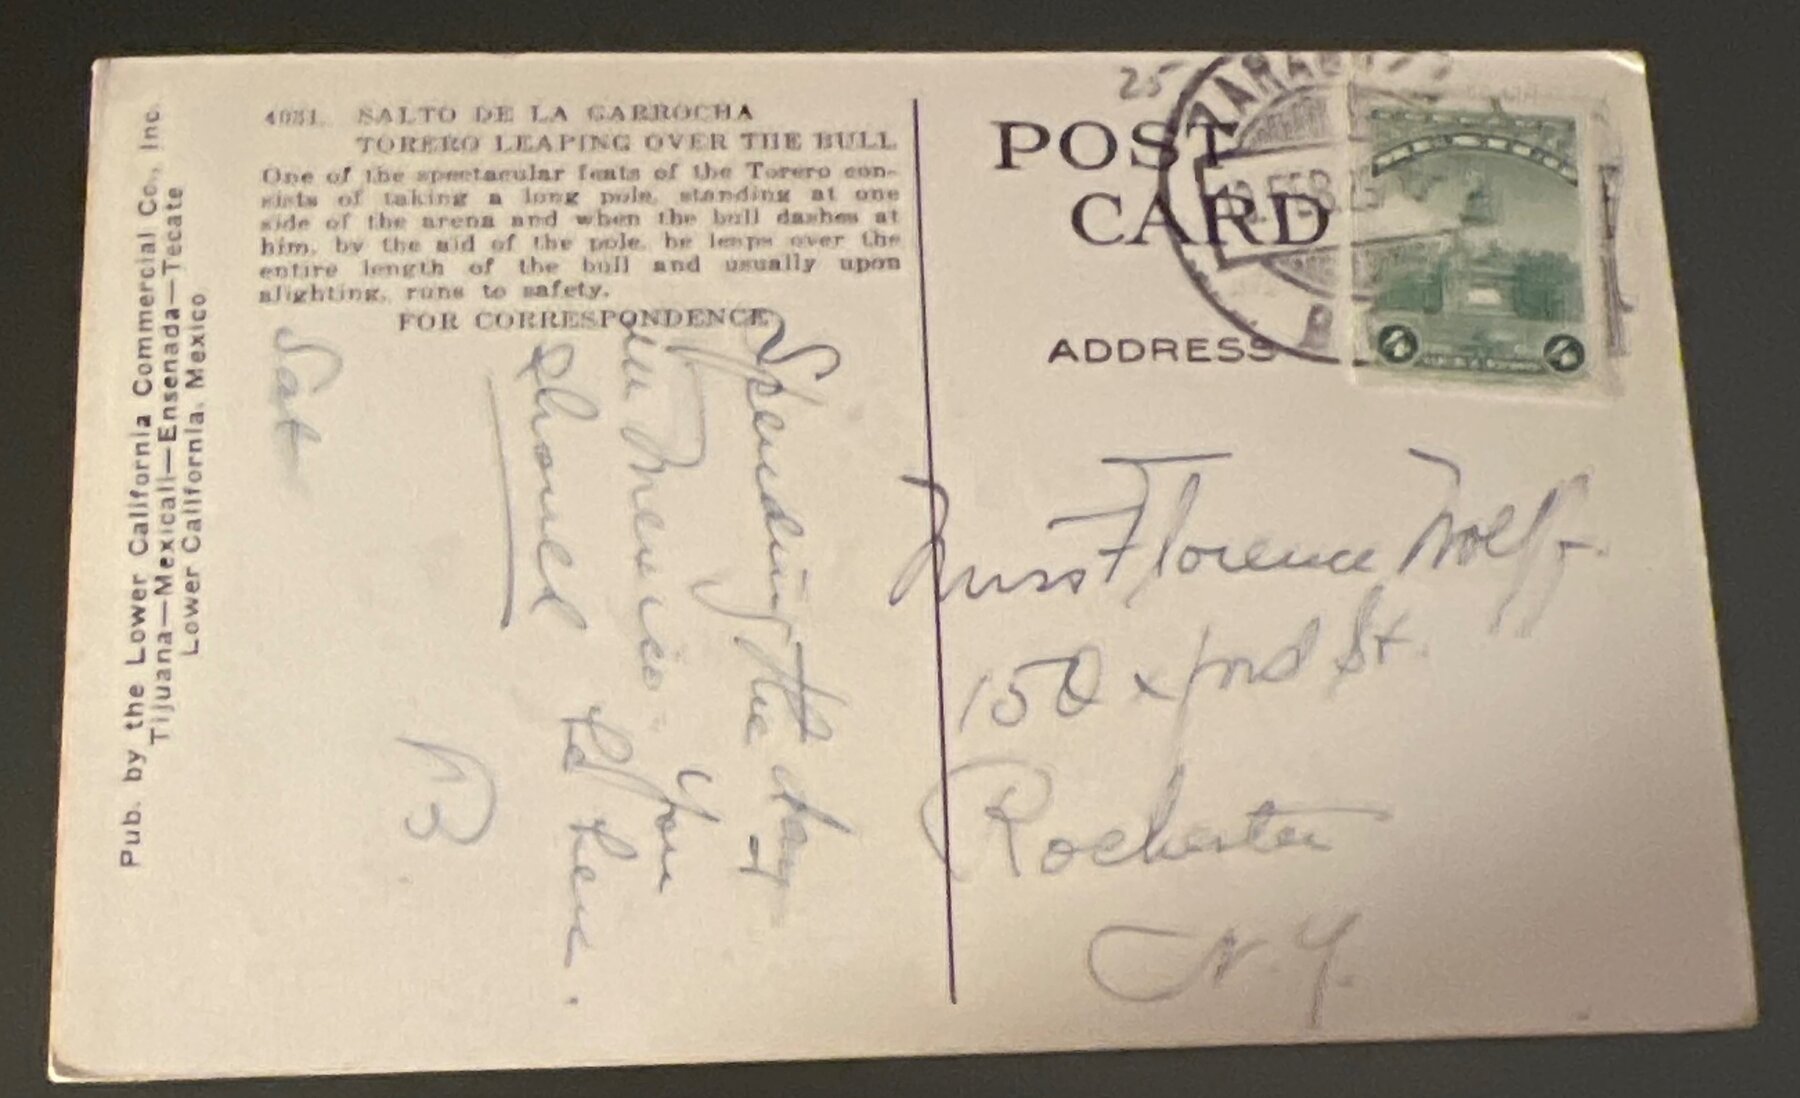 Pub. by the Lower California Commercial Co., Inc.
Tijuana—Mexicali—Ensenada—Tecate
Lower California, Mexico
4031. SALTO DE LA GARROCHA
TORERO LEAPING OVER THE BULL
One of the spectacular feats of the Torero con-
sists of taking a long pole, standing at one
side of the arena and when the bull dashes at
him, by the aid of the pole, he leaps over the
entire length of the bull and usually upon
alighting, runs to safety.
FOR CORRESPONDENCE
Spending the day
in Mexico You
should be here.
B.
Sat
25
POST
CARD
ADDRESS
FEB
4 4
Miss Florence Wolff
15 Oxford St.
Rochester
N.Y.